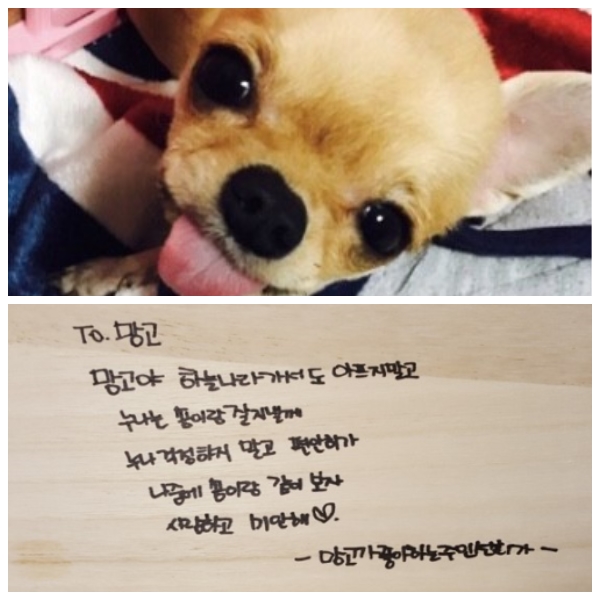 To. 망고
망고야 하늘나라가서도 아프지말고
누나는 콩이랑 잘지낼께
누나걱정하지 말고 편안히가
나중에 콩이랑 같이 보자
사랑하고 미안해♡.
- 망고가 좋아하는주인언니가 -